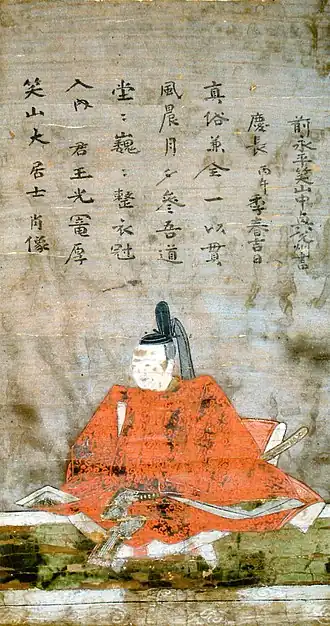 笑山大居士肖像
入内君王光寵厚
堂〻巍〻整衣冠
風晨月夕參吾道
真俗兼全一以貫
慶長丙午季春吉日
前永平笑山中書